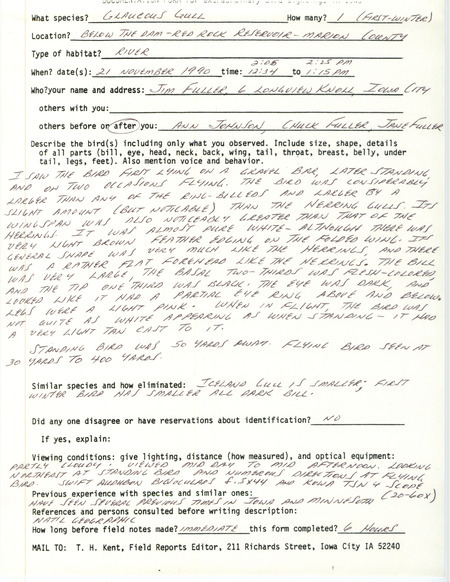 What species? GLAUCOUS GULL How many? 1 (FIRST-WINTER)
Location? BELOW THE DAM-RED ROCK RESERVOIR-MARION COUNTY
Type of habitat? RIVER
2:08 2:25 PM
When? date(s): 21 NOVEMBER 1990 time: 12:34 to 1:15 PM
Who?your name and address: JIM FULLER, 6 LONGVIEW KNOLL, IOWA CITY
others with you:
others before or after you: ANN JOHNSON, CHUCK FULLER, JANE FULLER
Describe the bird(s) including only what you observed. Include size, shape, details
of all parts (bill, eye, head, neck, back, wing, tail, throat, breast, belly, under
tail, legs, feet). Also mention voice and behavior.
I SAW THE BIRD FIRST LYING ON A GRAVEL BAR, LATER STANDING,
AND ON TWO OCCASIONS FLYING. THE BIRD WAS CONSIDERABLY
LARGER THAN ANY OF THE RING-BILLEDS AND LARGER BY A
SLIGHT AMOUNT (BUT NOTICABLE) THAN THE HERRING GULLS. ITS
WINGSPAN WAS ALSO NOTICEABLY GREATER THAN THAT OF THE
HERRINGS. IT WAS ALMOST PURE WHITE-ALTHOUGH THERE WAS
VERY LIGHT BROWN FEATHER EDGING ON THE FOLDED WING. ITS
GENERAL SHAPE WAS VERY MUCH LIKE THE HERRINGS, AND THERE
WAS A RATHER FLAT FOREHEAD LIKE THE HERRINGS. THE BILL
WAS VERY LARGE, THE BASAL TWO-THIRDS WAS FLESH-COLORED
AND THE TIP ONE THIRD WAS BLACK. THE EYE WAS DARK, AND
LOOKED LIKE IT HAD A PARTIAL EYE RING ABOVE AND BELOW.
LEGS WERE A LIGHT PINK. WHEN IN FLIGHT THE BIRD WAS
NOT QUITE AS WHITE APPEARING AS WHEN STANDING-IT HAD
A VERY LIGHT TAN CAST TO IT.
STANDING BIRD WAS 50 YARDS AWAY. FLYING BIRD SEEN AT
30 YARDS TO 400 YARDS.
Similar species and how eliminated: ICELAND GULL IS SMALLER; FIRST
WINTER BIRD HAS SMALLER ALL DARK BILL.
Did any one disagree or have reservations about identification? NO
If yes, explain:
Viewing conditions: give lighting, distance (how measured), and optical equipment:
PARTLY CLOUDY. VIEWED MID DAY TO MID AFTERNOON, LOOKING
NORTHEAST AT STANDING BIRD AND NUMEROUS DIRECTIONS AT FLYING
BIRD. SWIFT AUDUBON BINOCULARS 8.5X44 AND KOWA TSN 4 SCOPE
(20-60X)
Previous experience with species and similar ones:
HAVE SEEN SEVERAL PREVIOUS TIMES IN IOWA AND MINNESOTA
References and persons consulted before writing description:
NAT'L GEOGRAPHIC
How long before field notes made? IMMEDIATE this form completed? 6 HOURS
MAIL TO: T. H. Kent, Field Reports Editor, 211 Richards Street, Iowa City IA 52240